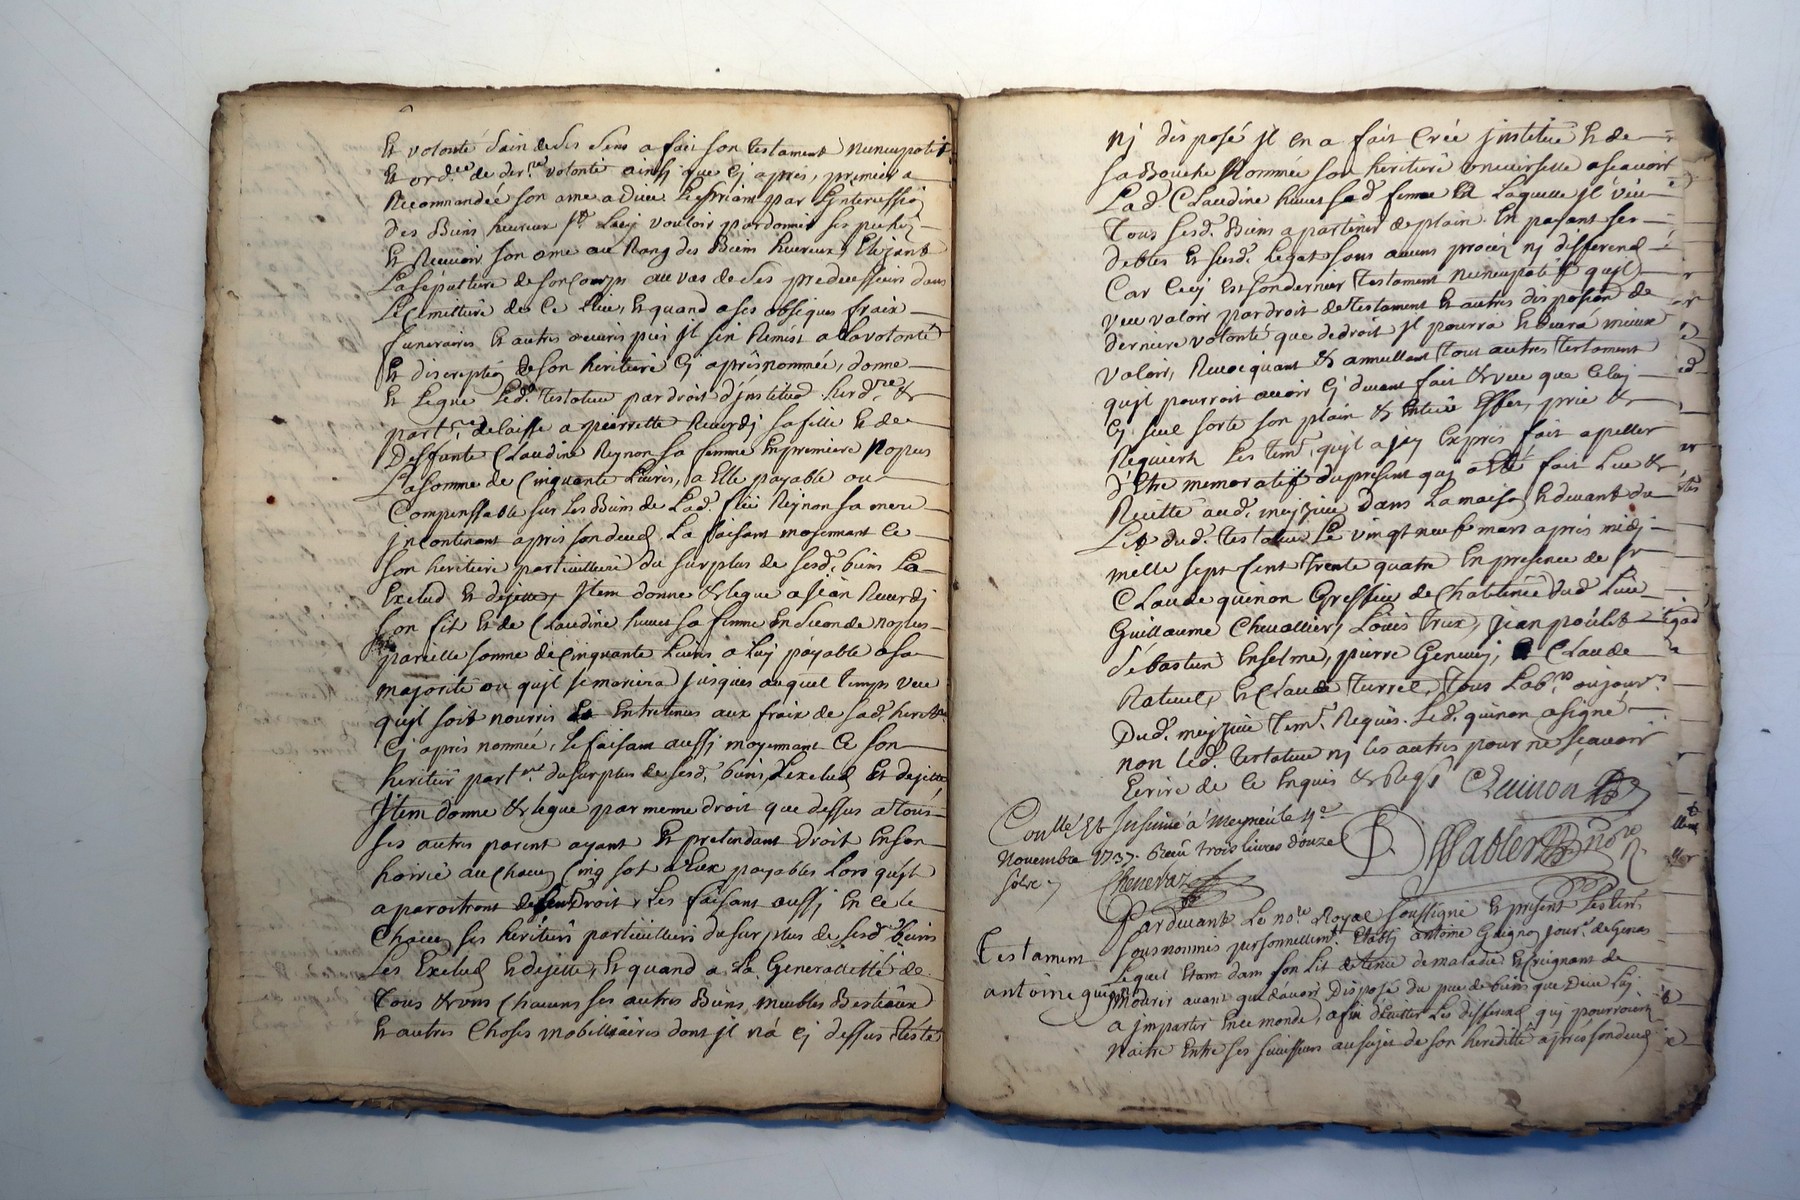 Et volonté sain de ses sens a fait son testament nuncupatif
Et ord.re de der.re volonté ainsi que Cj apres, premier a
Recommandée son ame a Dieu Le priant par Lintercession
des Biens heureux st Luij vouloir pardonner ses pechez
Et Recevoir son ame au Rang des Biens heureux, Elizant
La sépulture de son Corps au vas de ses predecesseurs dans
Le Cimittiere de Ce lieu, Et quand a ses obseques fraix
funeraires Et autres oeuvres pies Jl sen Remêst a La volonté
Et discreption de son heritiere Cj aprês nommée, donne
Et Legue Led. testateur par droit d'jnstitu.on hered.re &
part.re delaisse a pierrette Reverdj sa fille Et de
Deffunte Claudine Reynon sa femme En premiere nopces
La somme de Cinquante Livres, a Elle payable ou
Compenssable sur Les Biens de Lad. Reynon sa mere
jncontinant apres son deced La faisant moyennant Ce
son heritiere particulliere du surplus de sesd. biens La
Exclud Et dejette, Jtem donne & legue a jean Reverdj
son fils Et de Claudine sa femme En seconde nopces
pareille somme de Cinquante Livres a Luij payable a sa
majorité ou quil se mariera jusques auquel temps veut
quyl soit nourris Et Entretenus aux fraix de sad. herit.re
Cj apres nommée, Le faisant aussj moyennant Ce son
heritier part.er du surplus de sesd. biens, Lexclud Et dejette
Jtem donne & legue par meme droit que dessus a tous
ses autres parent ayant Et pretendant Droit En son
hoirie au Chacun Cinq sol a Eux payables Lors quyl
aparoitront de leur Droit, Les faisant aussj En ce le
Chacun ses heritiers particulliers du surplus de sesd. biens
Les Exclud Et dejette, Et quand a La Generallitté de
tous & uns Chacuns ses autres Biens, meubles Bestiaux
Et autres Choses mobilliaires dont jl n'a Cj dessus testé
nj disposé jl en a fait Crée jnstitue Et de
sa Bouche Nommée son heritiere universelle ascavoir
Lad. Claudine sad. femme a Laquelle jl veu
tous sesd. Biens apartenir de plain En payant ses
debtes Et susd. Legat sans aucuns proces nj differend
Car Cecj Est son dernier testament nuncupatif quyl
veu valoir par droit de testament Et autres disposi.on de
derniere volonté que de droit jl pourra Et devra mieux
valoir, Revocquant & annullant tout autres testament
quyl pourroit avoir Cj devant fait & veu que Celuj
Cj seul sorte son plain & Entier Effet, prie &
Requiert Les tem.s quyl a jcy Expres fait apeller
d'Etre memoratif du present quj a Eté fait Lu &
Recitté aud. meyzieu Dans La maison Et devant du
Lit dud. testateur Le vingt neuf mars après midj
melle sept cent trente quatre En presence de sr
Claude quinon Greffier de Chattenée dud Lieu
Guillaume Chevallier, Loüis Trux, jean poület
Sébastien Enselme, pierre Genevey, Claude
Ratuel, Et Claude Turrel, tous Lab.rs aujour
Dud. meyzieu tem.s Requis. Led. quinon a signé
non Led. testateur nj les autres pour ne scavoir
Ecrire de Ce Enquis & Req.s CQuinon
Conllé Et Jnsinué á meyzieu le 4.e
Novembre 1737. Receu trois livres douze
sols
Chenevaz
Pardevant Le no.re Royal soussigné Et present Les tem.
Testament
sous nommes personnellem.t Etablj antoine Guignon jour.r de Genas
Lequel Etant dans son Lit detenu de maladie Et Craignant de
antoine guignon
mourir avant que d'avoir Disposé du peu de biens que Dieu Luj
a jmpartir En ce monde, afin d'Eviter Les differend quj pourroient
Naitre Entre ses successeurs au sujet de son heredité après son deced